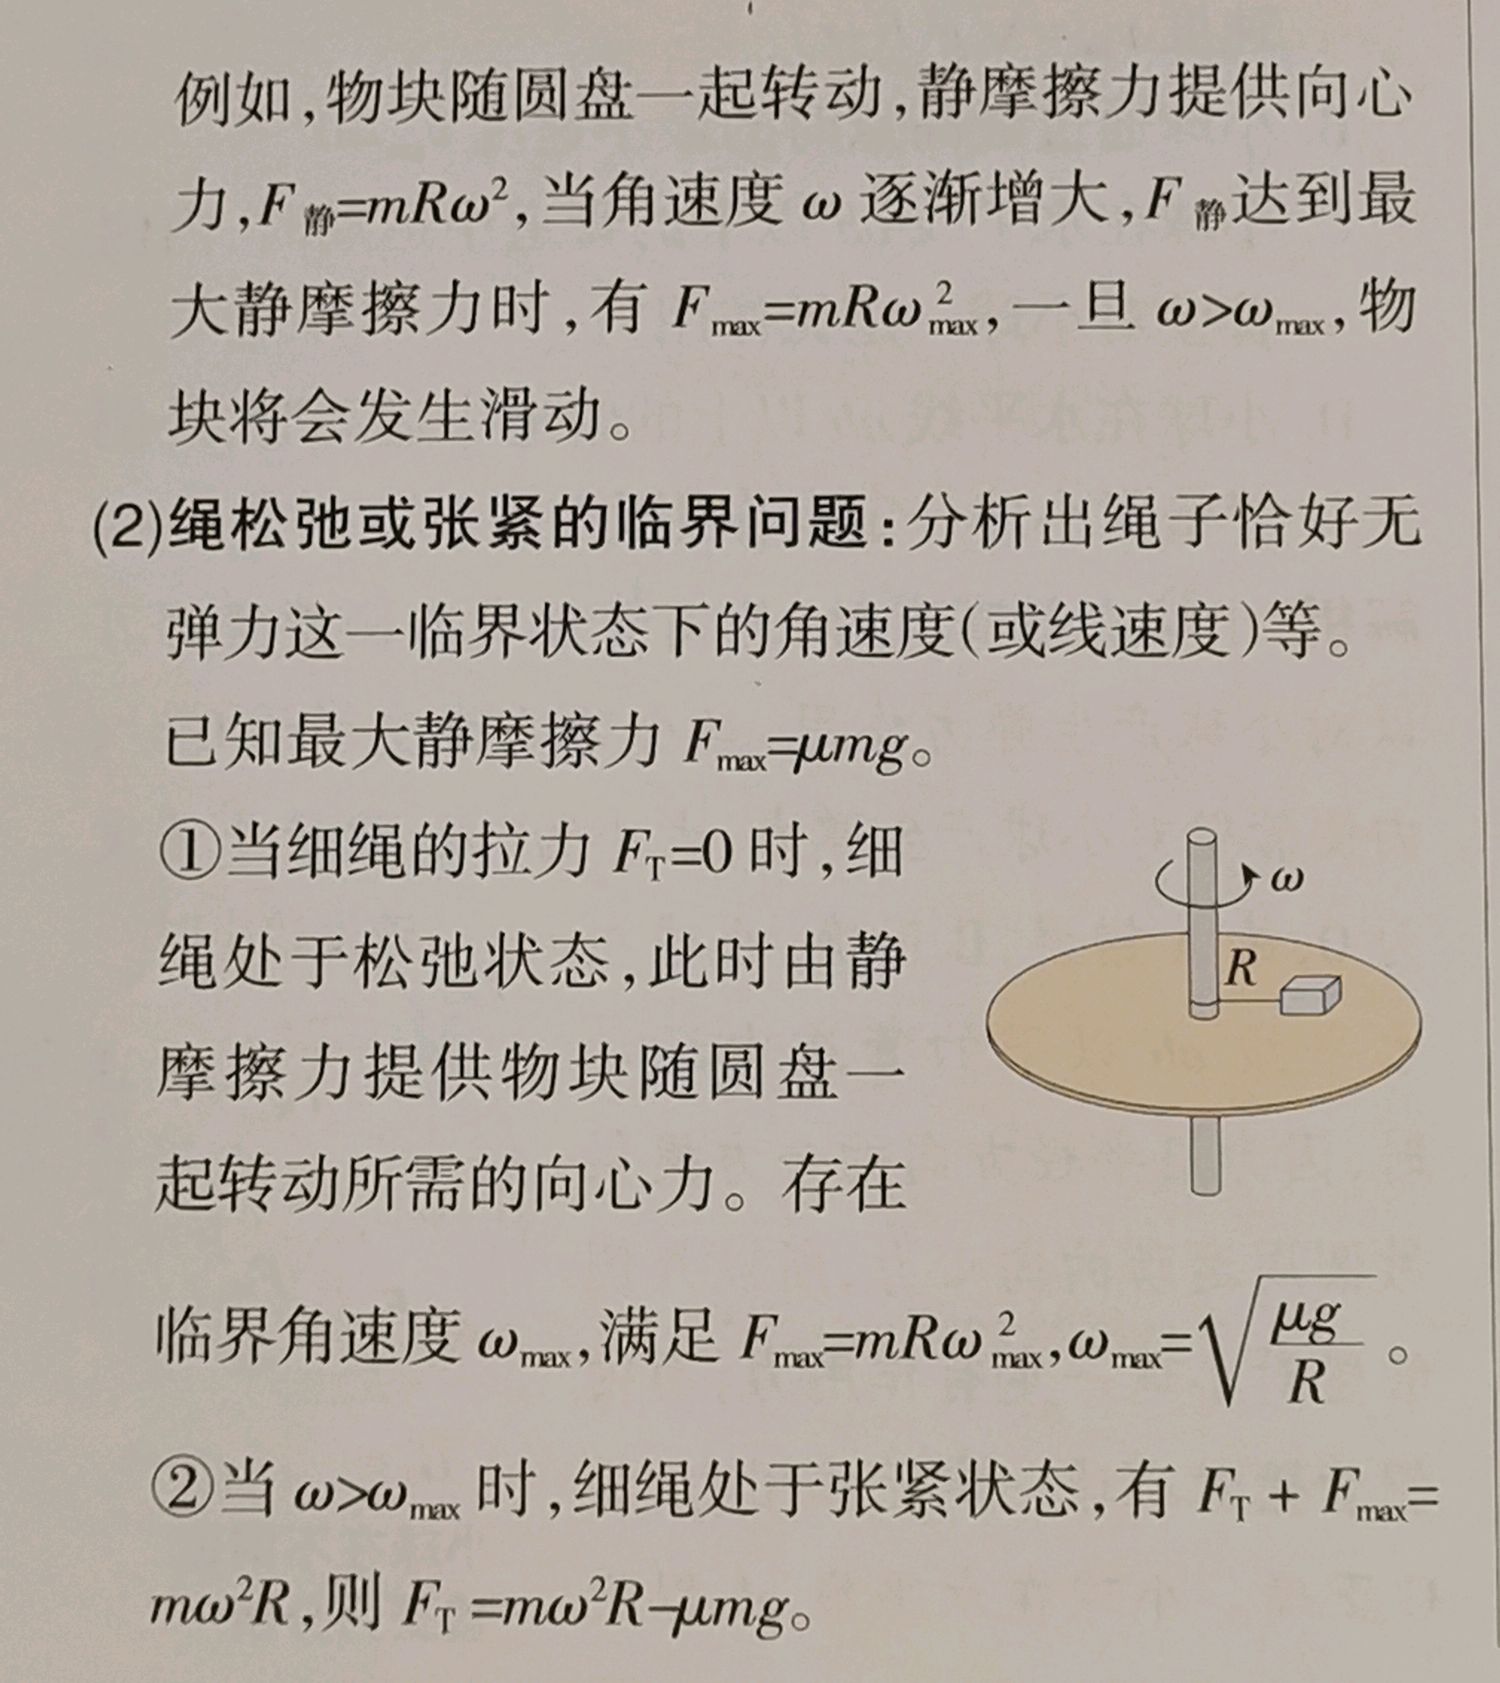 例如,物块随圆盘一起转动,静摩擦力提供向心
力,F静=mRω²,当角速度 ω 逐渐增大,F静达到最
大静摩擦力时,有 Fmax=mRω²max,一旦 ω>ωmax,物
块将会发生滑动。
(2)绳松弛或张紧的临界问题:分析出绳子恰好无
弹力这一临界状态下的角速度(或线速度)等。
已知最大静摩擦力 Fmax=μmg。
①当细绳的拉力 FT=0 时,细
绳处于松弛状态,此时由静
摩擦力提供物块随圆盘一
起转动所需的向心力。存在
ω
R
临界角速度 ωmax,满足 Fmax=mRω²max,ωmax=√(μg/R)。
②当 ω>ωmax 时,细绳处于张紧状态,有 FT + Fmax=
mω²R,则 FT=mω²R-μmg。